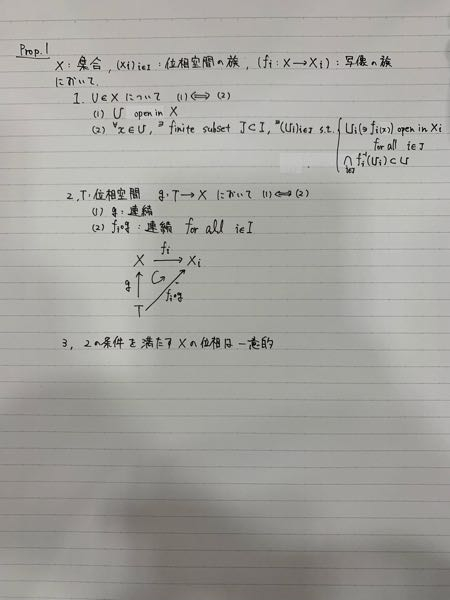 Prop.1
X: 集合, (Xi)i∈I: 位相空間の族, (fi: X→Xi): 写像の族
において,
1. U∈X について (1)⟺(2)
(1) U open in X
(2) ∀x∈U, ∃finite subset J⊂I, ∃(Ui)i∈J s.t. { Ui(∋fi(x)) open in Xi
for all i∈J
∩i∈J fi⁻¹(Ui)⊂U
2, T: 位相空間 g: T→X において (1)⟺(2)
(1) g: 連続
(2) fi∘g: 連続 for all i∈I
X fi→ Xi
g↑ fi∘g
T
3, 2の条件を満たすXの位相は一意的